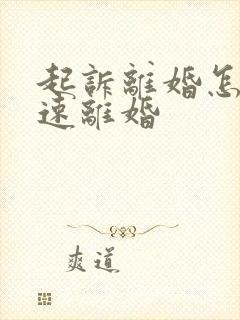 起訴離婚怎
速離婚
爽道